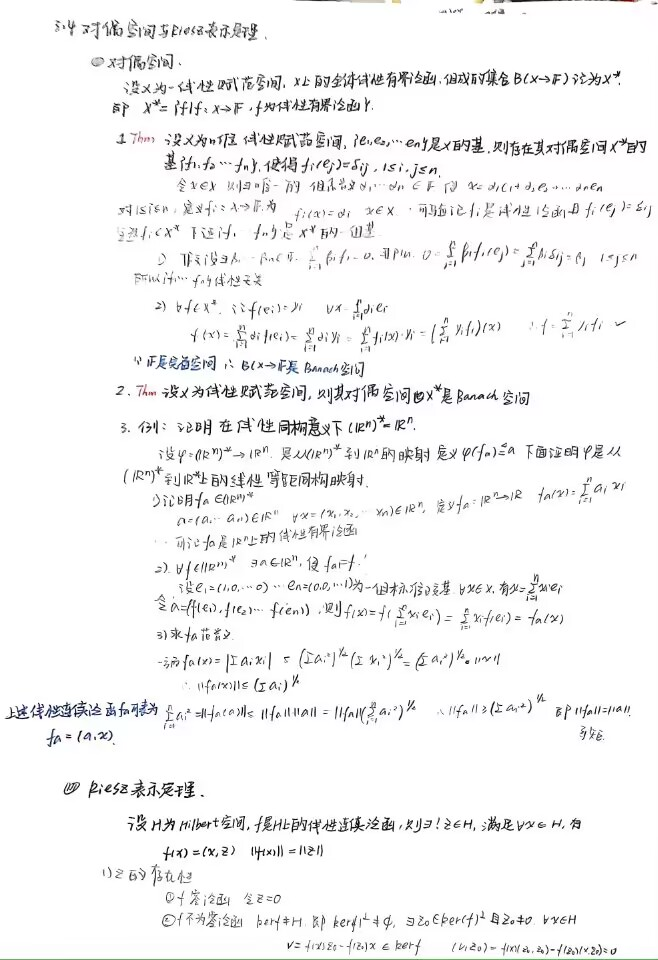 3.4 对偶空间与Riesz表示定理.
㊀ 对偶空间.
设X为一线性赋范空间, X上的全体线性有界泛函, 组成的集合 B(X→F) 记为X*.
即 X* = {f|f: X→F, f为线性有界泛函}.
1. Thm 设X为n维 线性赋范空间, {e₁,e₂,…en}是X的基. 则存在其对偶空间X*的
基{f₁, f₂ … fn}, 使得 fi(ej)=δij, 1≤i,j≤n.
令x∈X 则∃唯一的 α₁,…αn∈F 使 x=α₁e₁+α₂e₂+…αnen
对1≤i≤n, 定义fi: X→F, 为 fi(x)=αi x∈X. 可验证fi是线性泛函且 fi(ej)=δij
fi∈X* 下证{f₁ … fn}是X*的一组基
β₁ … βn∈F. Σβifi=0, 0=Σβifi(ej)=Σβiδij=βj 1≤j≤n
所以{f₁…fn}线性无关
2) ∀f∈X*. 记f(ei)=yi ∀x=Σαiei
f(x)=Σαif(ei)=Σαiyi=Σfi(x)·yi=(Σyifi)(x) ∴f=Σyifi ✓
∵F是完备空间 ∴B(X→F)是Banach空间
2. Thm 设X为线性赋范空间, 则其对偶空间X*是Banach空间
3. 例: 证明 在线性同构意义下 (ℝⁿ)*=ℝⁿ.
设φ=(ℝⁿ)*→ℝⁿ. 是从(ℝⁿ)*到ℝⁿ的映射 定义φ(fa)=a 下面证明φ是从
(ℝⁿ)*到ℝⁿ上的线性等距同构映射.
1) 证明fa∈(ℝⁿ)*
a=(a₁…an)∈ℝⁿ ∀x=(x₁,x₂,…xn)∈ℝⁿ, 定义fa=ℝⁿ→ℝ fa(x)=Σaixi
可证fa是ℝⁿ上的线性有界泛函
2). ∀f∈(ℝⁿ)* ∃a∈ℝⁿ, 使 fa=f.
设e₁=(1,0,…0) … en=(0,0,…1)为一组标准正交基 ∀x∈X, 有x=Σxiei
令a=(f(e₁), f(e₂)…f(en)), 则f(x)=f(Σxiei)=Σxif(ei)=fa(x)
3) 求fa范数
fa(x)=|Σaixi| ≤ (Σai²)^½(Σxi²)^½=(Σai²)^½·||x||
∴||fa(x)||≤(Σai)^½
上述线性连续泛函fa可表为 Σai²=||fa(a)||≤||fa||||a||=||fa||(Σai²)^½ ∴||fa||≥(Σai²)^½ 即||fa||=||a||.
fa=(a,x).
㊃ Riesz表示定理.
设H为Hilbert空间, f是H上的线性连续泛函, 则∃!z∈H, 满足∀x∈H, 有
f(x)=(x,z) ||f(x)||=||z||
1) z的存在性
① f零泛函 令z=0
② f不为零泛函 kerf≠H. 即 kerf⊥≠∅, ∃z₀∈ker(f)⊥且z₀≠0. ∀x∈H
v=f(x)z₀-f(z₀)x∈kerf (v,z₀)=f(x)(z₀,z₀)-f(z₀)(x,z₀)=0